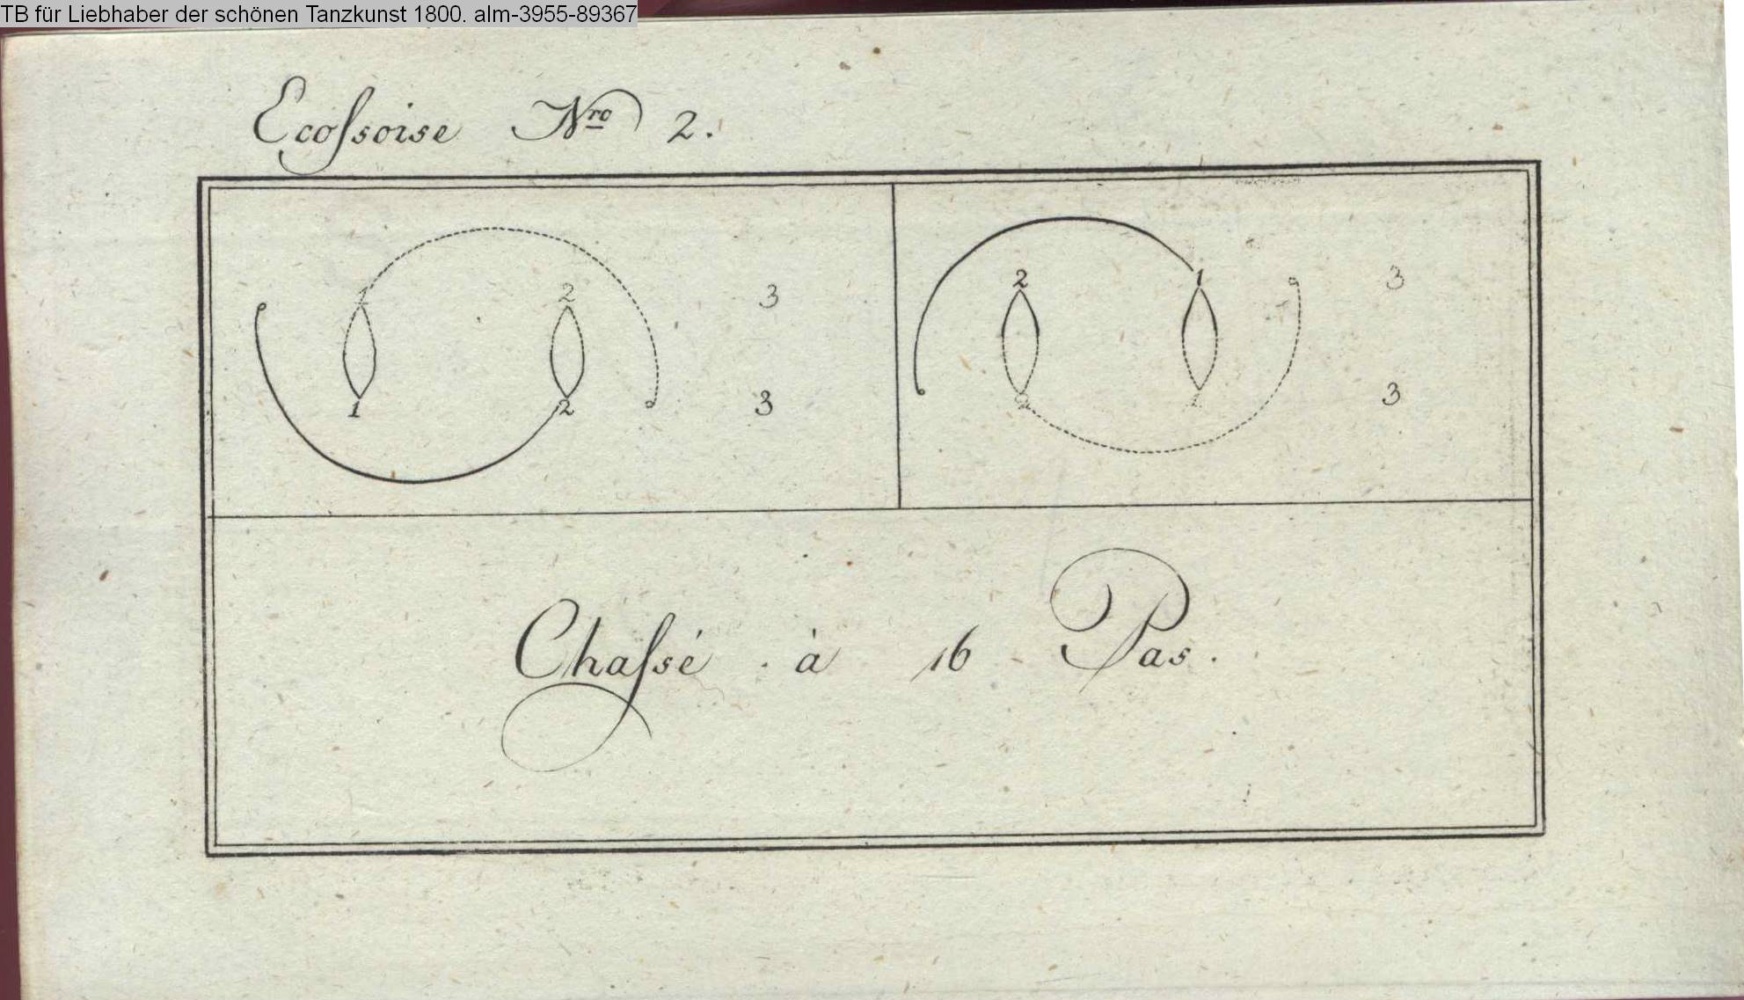 TB für Liebhaber der schönen Tanzkunst 1800. alm-3955-89367
Ecoſsoise Nro 2.
1 2 3
1 2 3
2 1 3
2 1 3
Chaſsé à 16 Pas.